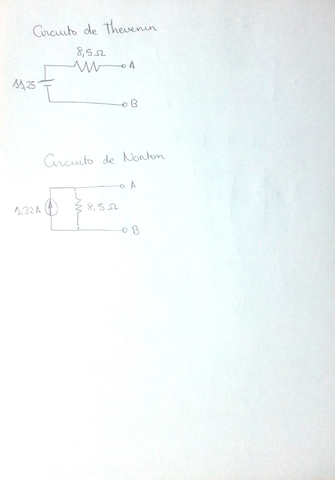 Circuito de Thevenin
8,5Ω
A
11,25
B
Circuito de Norton
A
1,32A
8,5Ω
B